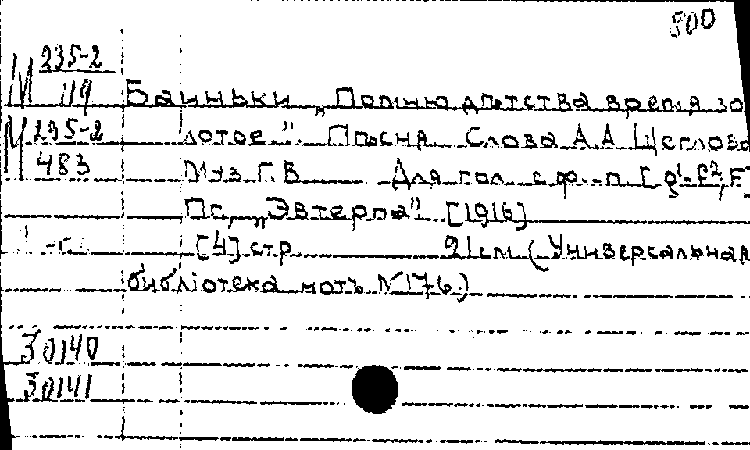 500
М 235-2
119
Баиньки „Помню дѣтства время зо
М 235-2 лотое". Пѣсня Слова А.А Щеглова
483 Муз Г.В Для гол с ф.-п [
Пг, „Эвтерпа" [1916]
[4] стр 21 см (Универсальная
библіотека нотъ №176.)
30140
30141